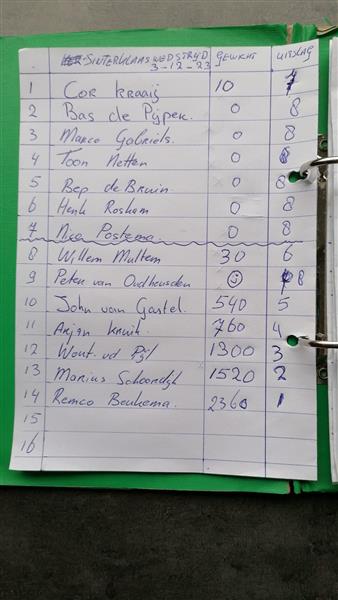 SINTERKLAAS WEDSTRIJD GEWICHT UITSLAG
3-12-23
1 Cor Kraaij 10 7
2 Bas de Pijper 0 8
3 Marco Gabriels. 0 8
4 Toon Netten 0 8
5 Bep de Bruin. 0 8
6 Henk Rosham 0 8
7 Nico Postema 0 8
8 Willem Multem 30 6
9 Peter van Oudheusden 0 8
10 John van Gastel. 540 5
11 Arjan Kruit. 760 4
12 Wout. vd Pijl 1300 3
13 Marius Schoordijk 1520 2
14 Remco Beukema. 2360 1
15
16